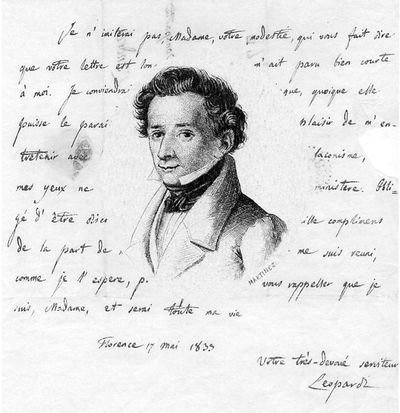 Je n'imiterai pas, Madame, votre modestie, qui vous fait dire
que votre lettre est lon- m'ait paru bien courte
à moi. Je conviendrai que, quoique elle
puisse le parai plaisir de m'en-
tretenir avec laconisme,
mes yeux ne ministère. Obli-
gé d'être disc ille complimens
de la part de me suis reuni,
comme je l'espere, p. vous rappeller que je
suis, Madame, et serai toute ma vie
MARTINEZ
Florence 17 mai 1833
Votre très-devoué serviteur
Leopardi